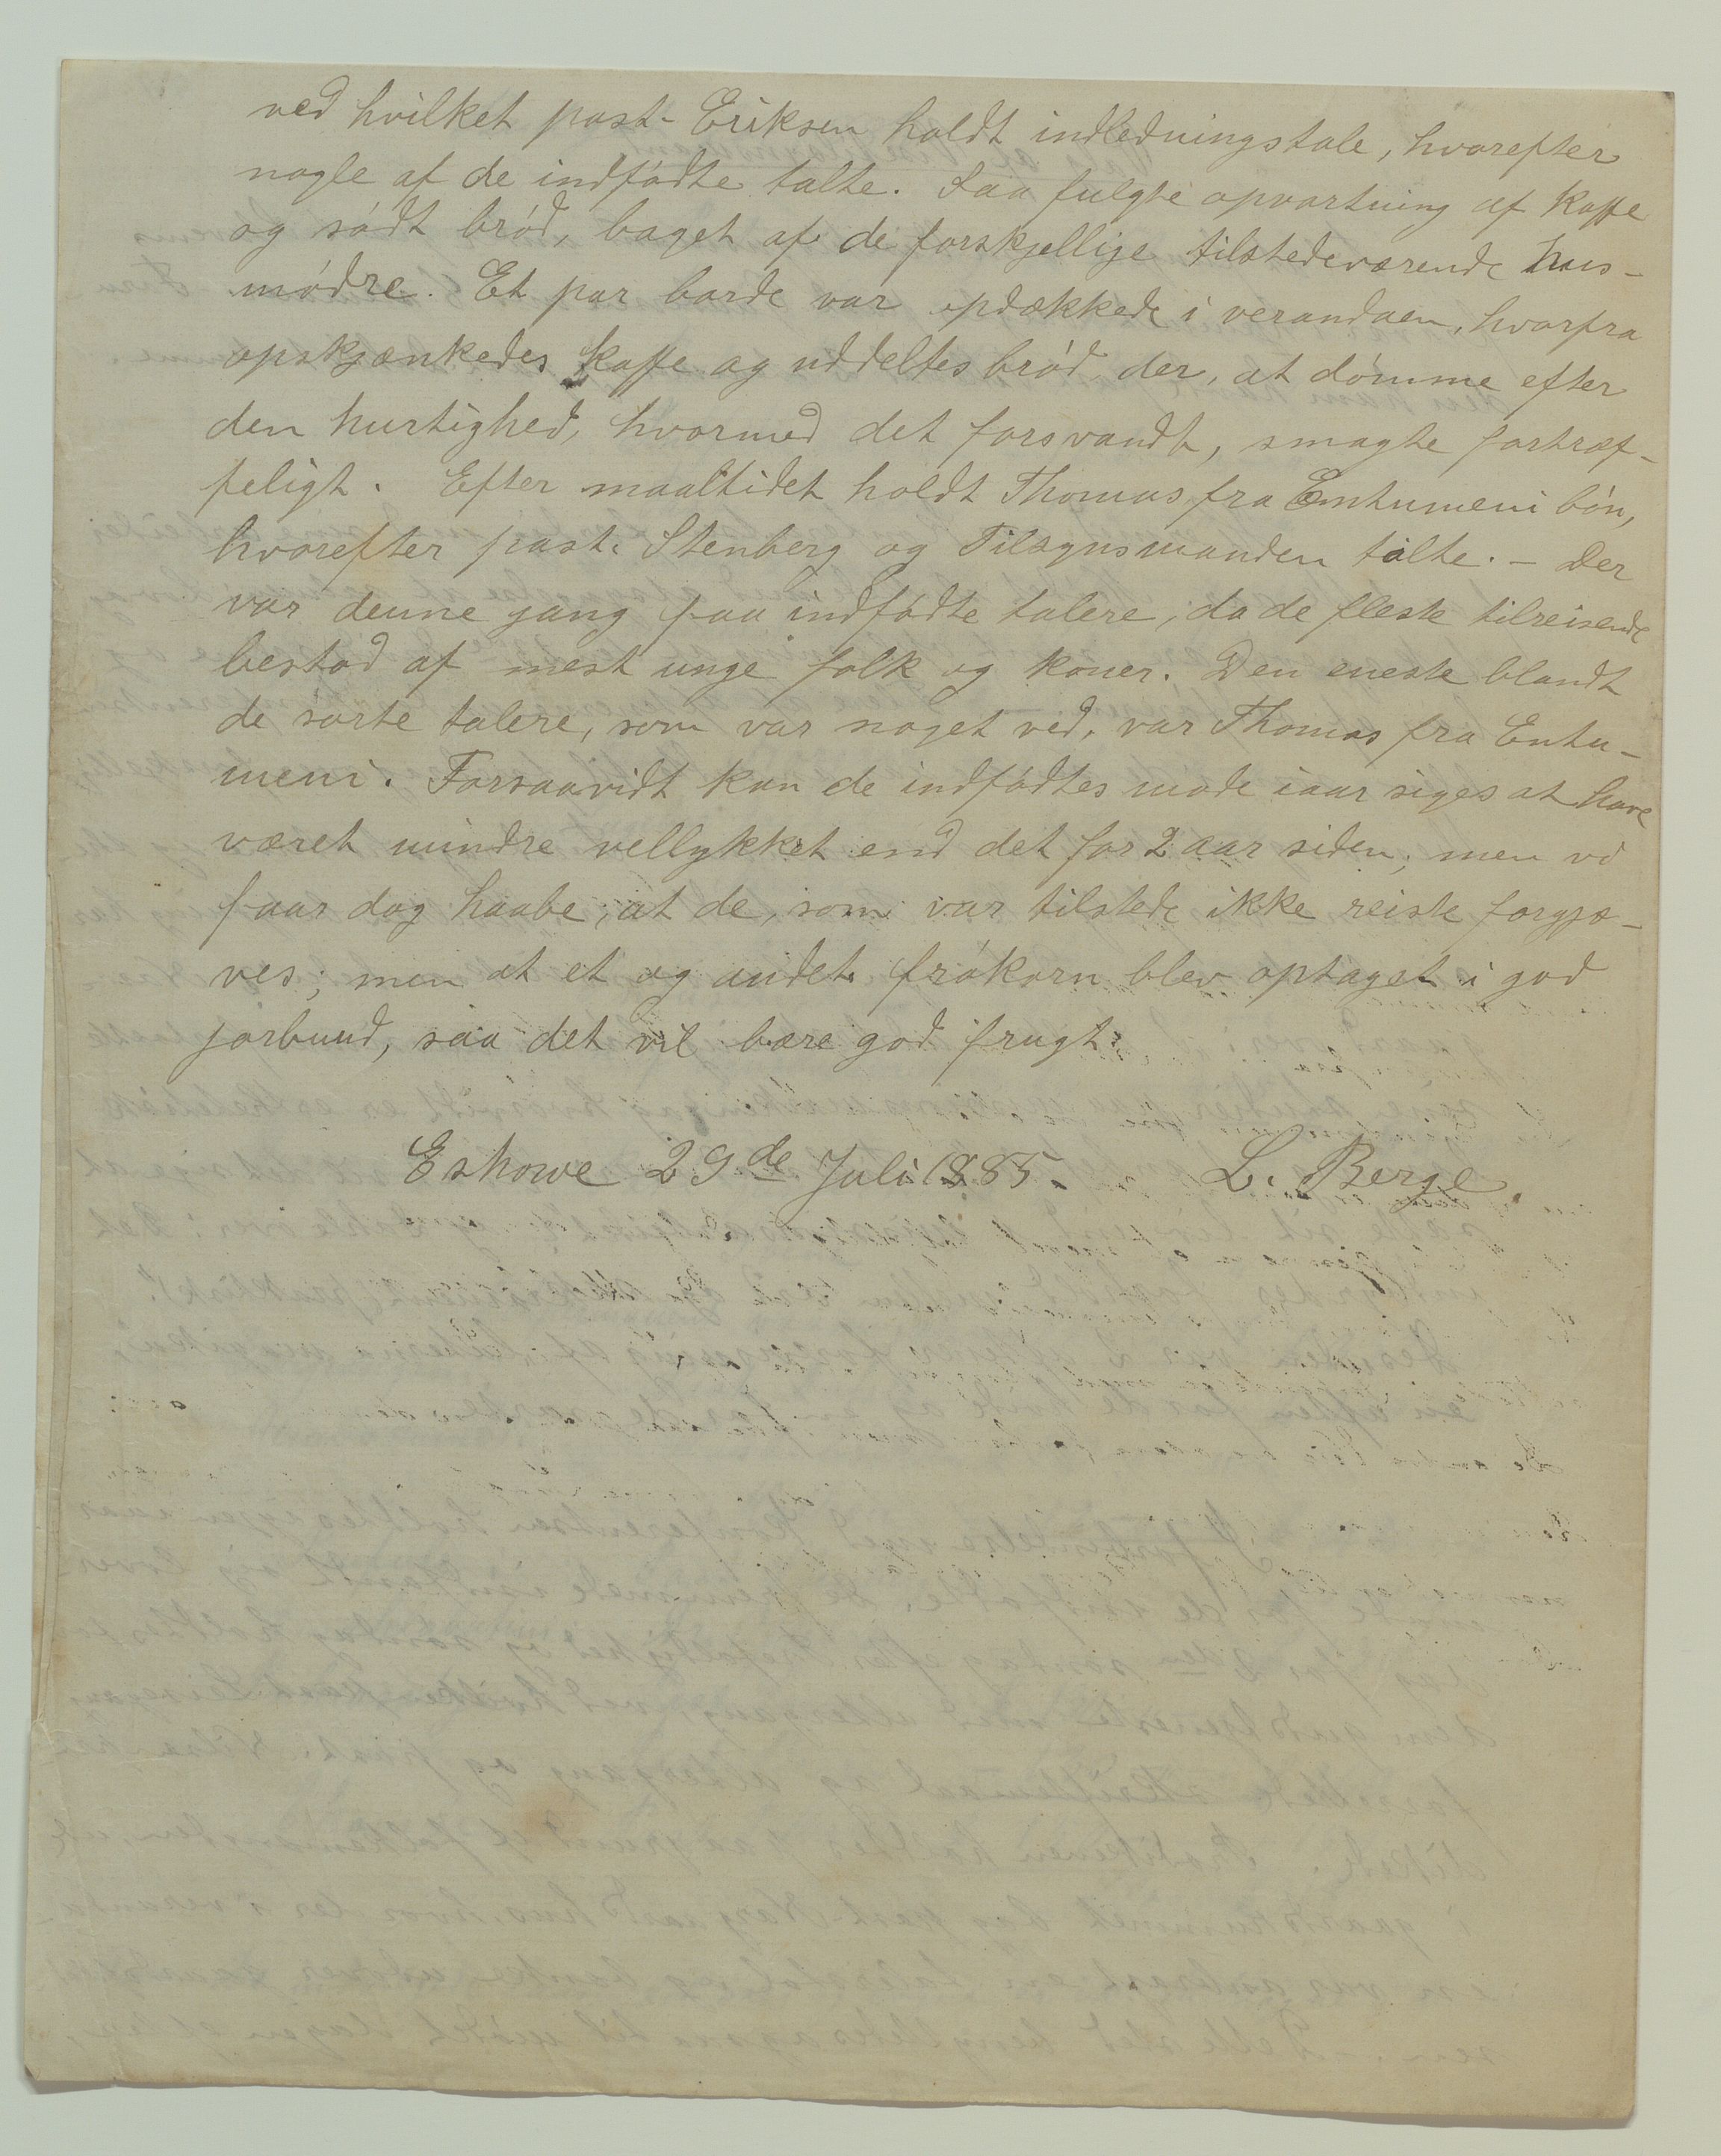 ved hvilket past. Eriksen holdt indledningstale, hvorefter
nogle af de indfødte talte. Saa fulgte opvartning af kaffe
og sødt brød, baget af de forskjellige tilstedeværende hus-
mødre. Et par borde var opdækkede i verandaen, hvorfra
opskjænkedes kaffe og uddeltes brød, der, at dømme efter
den hurtighed, hvormed det forsvandt, smagte fortræf-
feligt. Efter maaltidet holdt Thomas fra Emtumeni bøn,
hvorefter past. Stenberg og Tilsynsmanden talte. – Der
var denne gang faa indfødte talere, da de fleste tilreisende
bestod af mest unge folk og koner. Den eneste blandt
de sorte talere, som var noget ved, var Thomas fra Entu-
meni. Forsaavidt kan de indfødtes møde iaar siges at have
været mindre vellykket end det for 2 aar siden; men vi
faar dog haabe, at de, som var tilstede ikke reiste forgjæ-
ves; men at et og andet frøkorn blev optaget i god
jorbund, saa det vil bære god frugt.
Eshowe 29de Juli 1885. L. Berge.